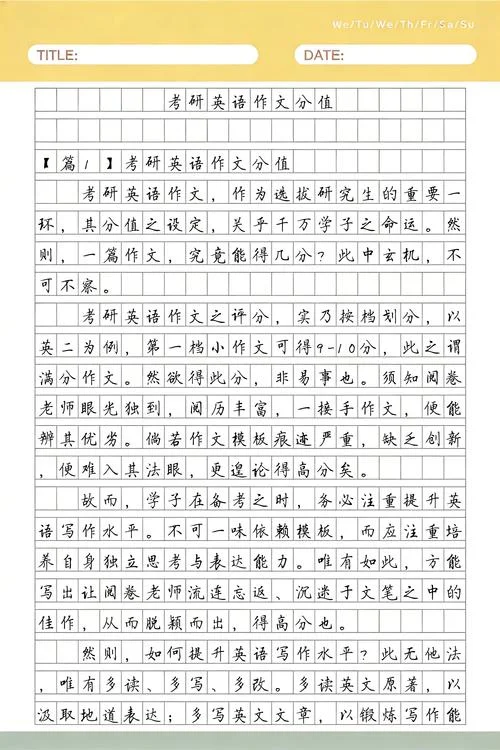 We/Tu/We/Th/Fr/Sa/Su
TITLE:
DATE:
考研英语作文分值
【篇1】考研英语作文分值
考研英语作文，作为选拔研究生的重要一
环，其分值之设定，关乎千万学子之命运。然
则，一篇作文，究竟能得几分？此中玄机，不
可不察。
考研英语作文之评分，实乃按档划分，以
英二为例，第一档小作文可得9-10分，此之谓
满分作文。然欲得此分，非易事也。须知阅卷
老师眼光独到，阅历丰富，一接手作文，便能
辨其优劣。倘若作文模板痕迹严重，缺乏创新
，便难入其法眼，更遑论得高分矣。
故而，学子在备考之时，务必注重提升英
语写作水平。不可一味依赖模板，而应注重培
养自身独立思考与表达能力。唯有如此，方能
写出让阅卷老师流连忘返、沉迷于文笔之中的
佳作，从而脱颖而出，得高分也。
然则，如何提升英语写作水平？此无他法
，唯有多读、多写、多改。多读英文原著，以
汲取地道表达；多写英文文章，以锻炼写作能